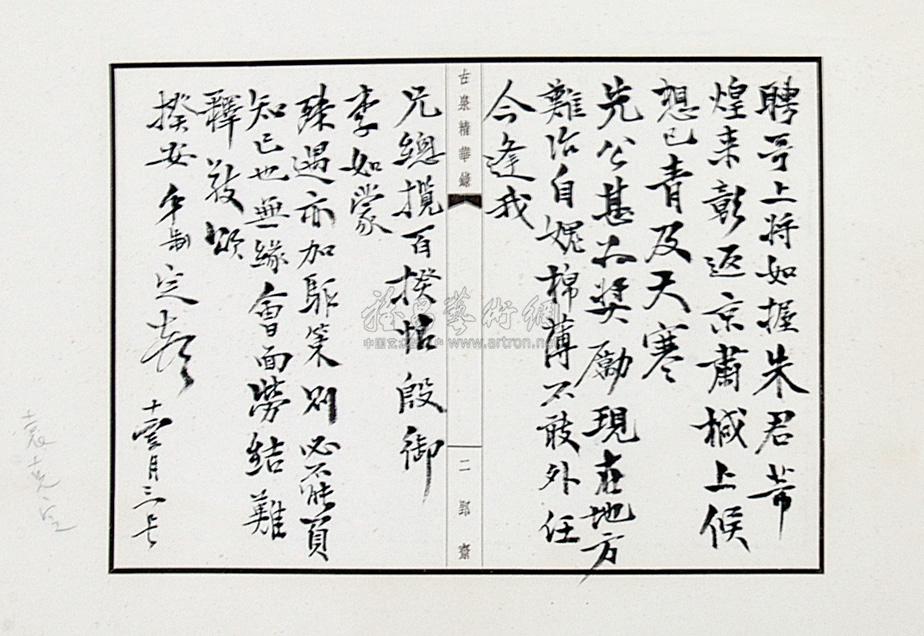 聘哥上将如握朱君芾
煌来彰返京肃椷上候
想已青及天寒
先公甚加奖励現在地方
難治自媿棉薄不敢外任
今逢我
兄總揽百揆怙殷御
李如蒙
殊遇亦加駈策則必不能負
知己也無緣會面勞結難
釋敬頌
揆安 弟制定 十二月三号
古泉精華錄
二郢齋
雅昌藝術網
中国艺术品 www.artron.net
袁克定